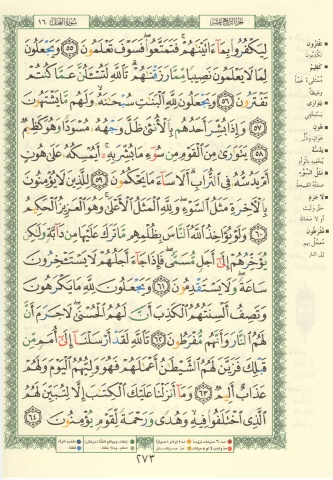 سورة النحل ١٦
الجزء الرابع عشر
لِيَكْفُرُوا۟ بِمَآ ءَاتَيْنَٰهُمْ ۚ فَتَمَتَّعُوا۟ ۖ فَسَوْفَ تَعْلَمُونَ ٥٥ وَيَجْعَلُونَ
لِمَا لَا يَعْلَمُونَ نَصِيبًا مِّمَّا رَزَقْنَٰهُمْ ۗ تَٱللَّهِ لَتُسْـَٔلُنَّ عَمَّا كُنتُمْ
تَفْتَرُونَ ٥٦ وَيَجْعَلُونَ لِلَّهِ ٱلْبَنَٰتِ سُبْحَٰنَهُۥ ۙ وَلَهُم مَّا يَشْتَهُونَ
٥٧ وَإِذَا بُشِّرَ أَحَدُهُم بِٱلْأُنثَىٰ ظَلَّ وَجْهُهُۥ مُسْوَدًّا وَهُوَ كَظِيمٌ
٥٨ يَتَوَٰرَىٰ مِنَ ٱلْقَوْمِ مِن سُوٓءِ مَا بُشِّرَ بِهِۦٓ ۚ أَيُمْسِكُهُۥ عَلَىٰ هُونٍ
أَمْ يَدُسُّهُۥ فِى ٱلتُّرَابِ ۗ أَلَا سَآءَ مَا يَحْكُمُونَ ٥٩ لِلَّذِينَ لَا يُؤْمِنُونَ
بِٱلْءَاخِرَةِ مَثَلُ ٱلسَّوْءِ ۖ وَلِلَّهِ ٱلْمَثَلُ ٱلْأَعْلَىٰ ۚ وَهُوَ ٱلْعَزِيزُ ٱلْحَكِيمُ
٦٠ وَلَوْ يُؤَاخِذُ ٱللَّهُ ٱلنَّاسَ بِظُلْمِهِم مَّا تَرَكَ عَلَيْهَا مِن دَآبَّةٍ وَلَٰكِن
يُؤَخِّرُهُمْ إِلَىٰٓ أَجَلٍ مُّسَمًّى ۖ فَإِذَا جَآءَ أَجَلُهُمْ لَا يَسْتَـْٔخِرُونَ
سَاعَةً ۖ وَلَا يَسْتَقْدِمُونَ ٦١ وَيَجْعَلُونَ لِلَّهِ مَا يَكْرَهُونَ
وَتَصِفُ أَلْسِنَتُهُمُ ٱلْكَذِبَ أَنَّ لَهُمُ ٱلْحُسْنَىٰ ۖ لَا جَرَمَ أَنَّ
لَهُمُ ٱلنَّارَ وَأَنَّهُم مُّفْرَطُونَ ٦٢ تَٱللَّهِ لَقَدْ أَرْسَلْنَآ إِلَىٰٓ أُمَمٍ مِّن
قَبْلِكَ فَزَيَّنَ لَهُمُ ٱلشَّيْطَٰنُ أَعْمَٰلَهُمْ فَهُوَ وَلِيُّهُمُ ٱلْيَوْمَ وَلَهُمْ
عَذَابٌ أَلِيمٌ ٦٣ وَمَآ أَنزَلْنَا عَلَيْكَ ٱلْكِتَٰبَ إِلَّا لِتُبَيِّنَ لَهُمُ
ٱلَّذِى ٱخْتَلَفُوا۟ فِيهِ ۙ وَهُدًى وَرَحْمَةً لِّقَوْمٍ يُؤْمِنُونَ ٦٤
تفترون
تكذبون
كظيم
يتوارى
يستخفي
هون
هوان وذل
يدسه
يخفيه بالوأد
مثل السوء
صفته القبيحة
لا جرم
مفرطون
إلى النار
٢٧٣